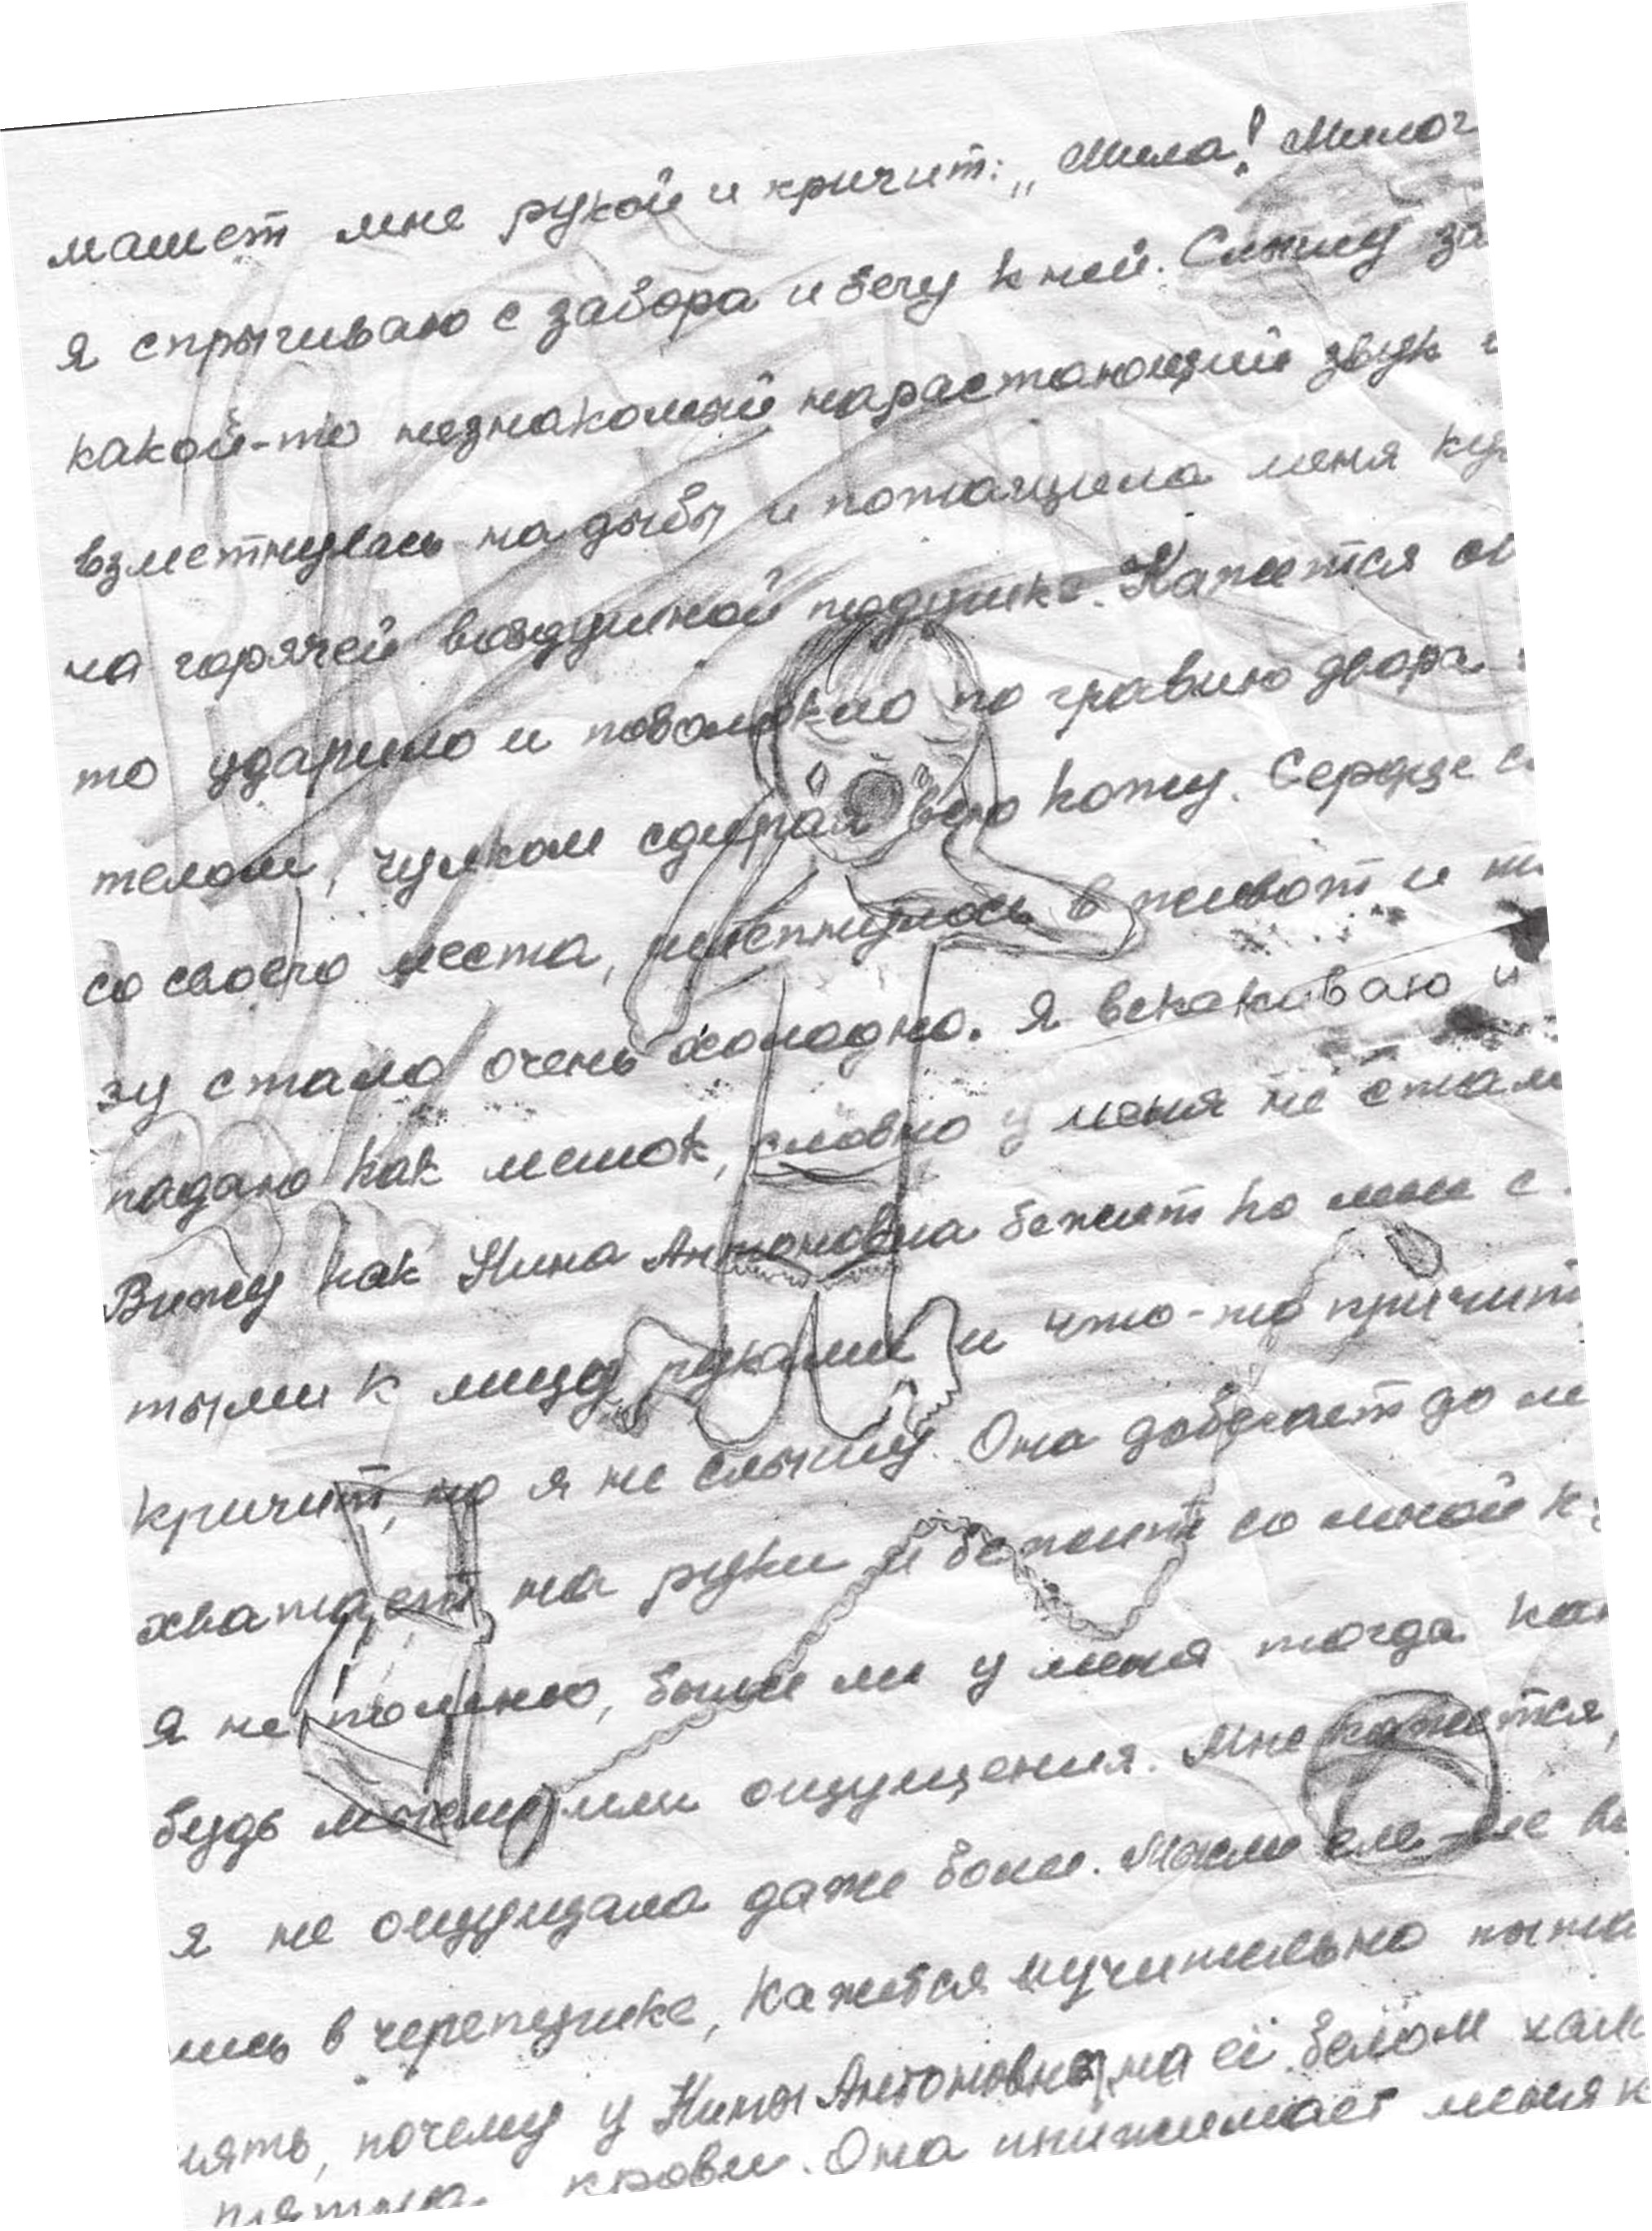 машет мне рукой и кричит: „Мила! Милоч
я спрыгиваю с забора и бегу к ней. Слышу за
какой-то незнакомый нарастающий звук и
взметнулась на дыбы и потащила меня ку
на горячей воздушной подушке. Кажется он
то ударило и поволокло по гравию двора
телом, чулком сдирая всю кожу. Сердце с
со своего места, метнулось в живот и
зу стало очень холодно. Я вскакиваю и
падаю как мешок, словно у меня не стал
Вижу как Нина Антоновна бежит ко мне с
тыми к лицу руками и что-то кричит
кричит, но я не слышу. Она добегает до м
хватает на руки и бежит со мной к
Я не помню, были ли у меня тогда как
будь мысли или ощущения. Мне кажется,
я не ощущала даже боли. Мысли еле-еле
лись в черепушке, кажется мучительно пыта
нять, почему у Нины Антоновны на её белом хал
пятна крови. Она прижимает меня к